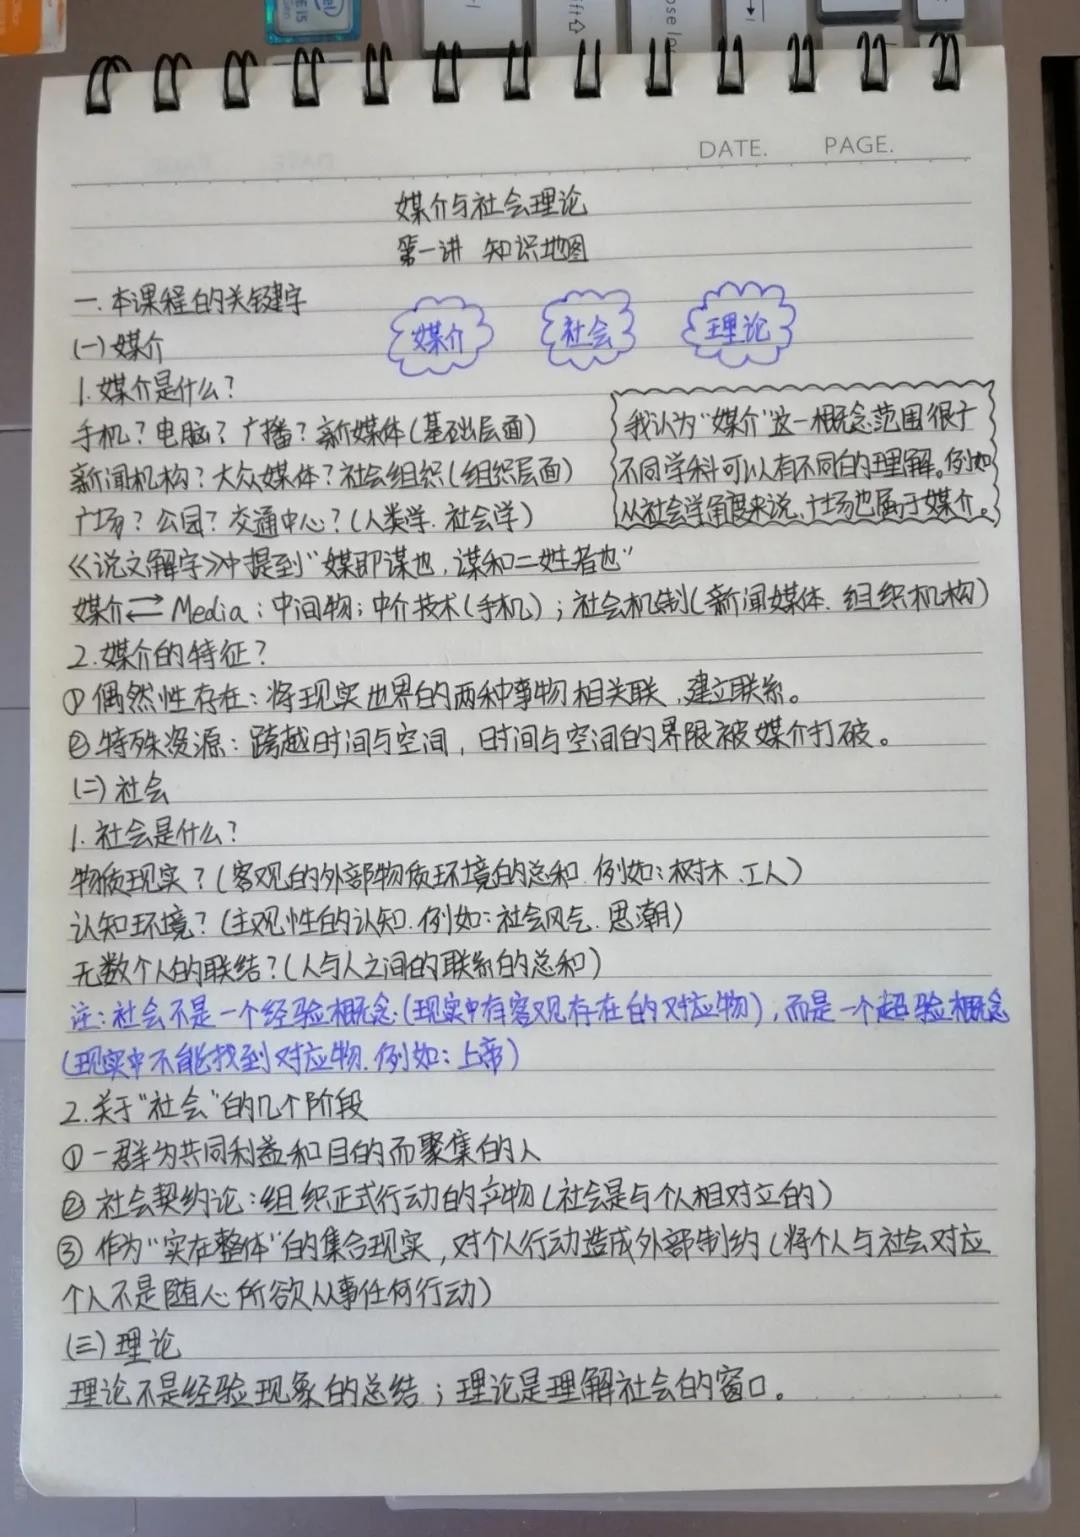 DATE. PAGE.
媒介与社会理论
第一讲 知识地图
一.本课程的关键字
媒介 社会 理论
(一)媒介
1.媒介是什么?
手机?电脑?广播?新媒体(基础层面)
新闻机构?大众媒体?社会组织(组织层面)
广场?公园?交通中心?(人类学.社会学)
我认为“媒介”这一概念范围很广
不同学科可以有不同的理解。例如
从社会学角度来说,广场也属于媒介。
《说文解字》中提到“媒即谋也,谋和二姓者也”
媒介⇄Media:中间物;中介技术(手机);社会机制(新闻媒体.组织机构)
2.媒介的特征?
①偶然性存在:将现实世界的两种事物相关联,建立联系。
②特殊资源:跨越时间与空间,时间与空间的界限被媒介打破。
(二)社会
1.社会是什么?
物质现实?(客观的外部物质环境的总和.例如:树木、工人)
认知环境?(主观性的认知.例如:社会风气.思潮)
无数个人的联结?(人与人之间的联系的总和)
注:社会不是一个经验概念(现实中有客观存在的对应物),而是一个超验概念
(现实中不能找到对应物.例如:上帝)
2.关于“社会”的几个阶段
①一群为共同利益和目的而聚集的人
②社会契约论:组织正式行动的产物(社会是与个人相对立的)
③作为“实在整体”的集合现实,对个人行动造成外部制约(将个人与社会对应
个人不是随心所欲从事任何行动)
(三)理论
理论不是经验现象的总结;理论是理解社会的窗口。